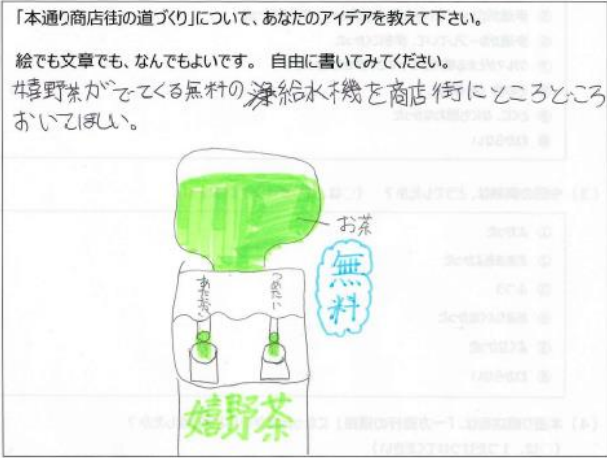 「本通り商店街の道づくり」について、あなたのアイデアを教えて下さい。
絵でも文章でも、なんでもよいです。 自由に書いてみてください。
嬉野茶がでてくる無料の給水機を商店街にところどころ
おいてほしい。
お茶
無料
あたたかい
つめたい
嬉野茶